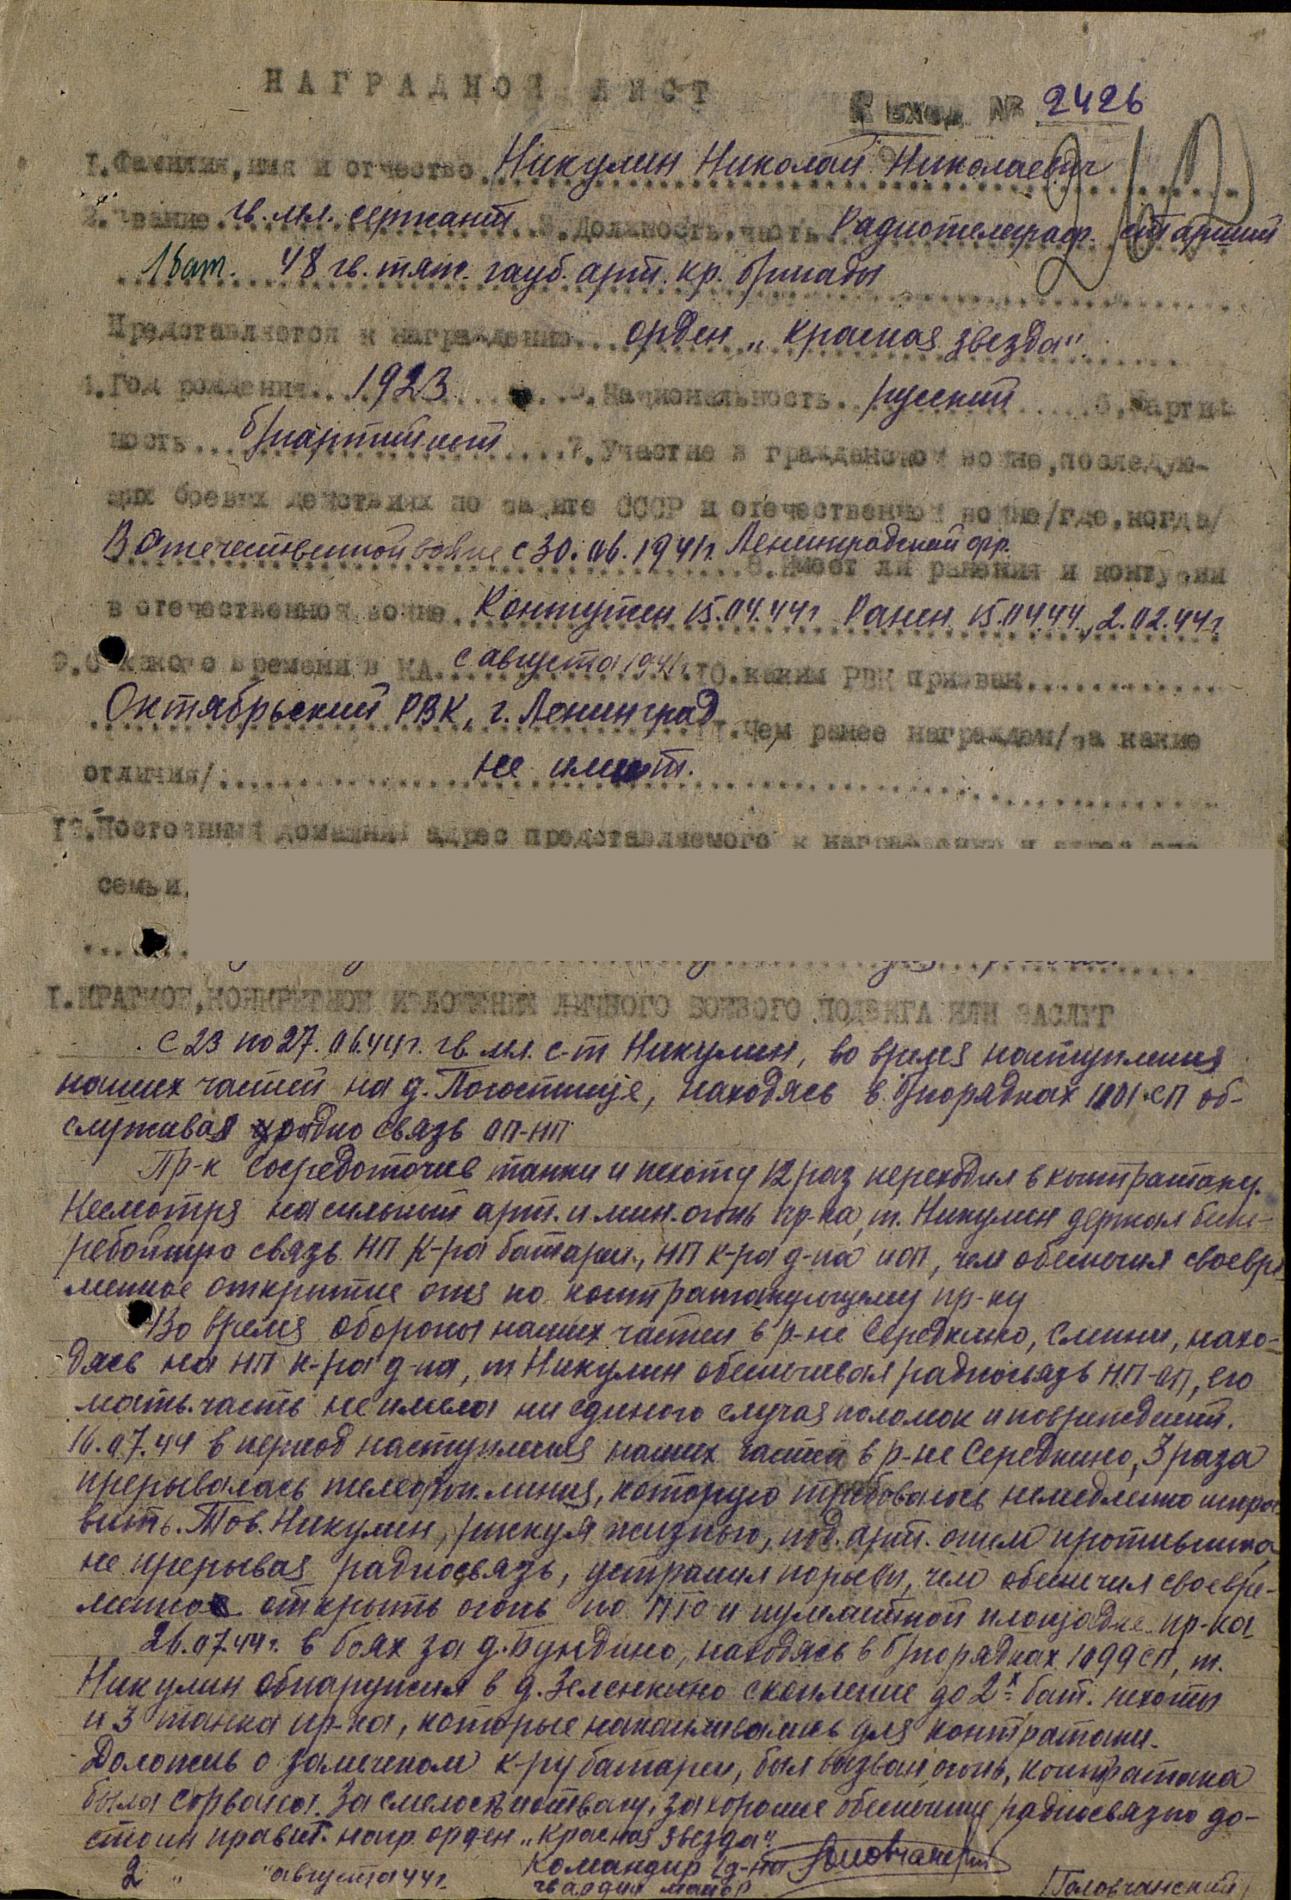 НАГРАДНОЙ ЛИСТ
К вход № 2426
1. Фамилия, имя и отчество Никулин Николай Николаевич
2. Звание гв. мл. сержант 3. Должность, часть Радиотелеграф. старший
1 бат. 48 гв. тяж. гауб. арт. кр. бригады
Представляется к награждению орден „Красная звезда".
4. Год рождения 1923 5. Национальность русский 6. Партий
ность б/партийност 7. Участие в гражданской войне, последую-
щих боевых действиях по защите СССР и отечественной войне/где, когда/
В Отечественной войне с 30.06.1941 г. Ленинградский фр.
8. Имеет ли ранения и контузии
в отечественной войне Контужен 15.04.44 г Ранен 15.04.44, 2.02.44 г.
9. С какого времени в КА с августа 1941 г. 10. каким РВК призван
Октябрьский РВК, г. Ленинград
11. Чем ранее награжден/за какие
отличия/ не имеет.
12. Постоянный домашний адрес представляемого к награждению и адрес его
семьи
1. КРАТКОЕ, КОНКРЕТНОЕ ИЗЛОЖЕНИЕ ЛИЧНОГО БОЕВОГО ПОДВИГА ИЛИ ЗАСЛУГ
С 23 по 27.06.44 г. гв. мл. с-т Никулин, во время наступления
наших частей на д. Погостище, находясь в б/порядках 1101 сп об-
служивая радио связь ОП-НП
Пр-к сосредоточив танки и пехоту 12 раз переходил в контратаку.
Несмотря на сильный арт. и мин. огонь пр-ка, т. Никулин держал беспе-
ребойную связь НП к-ра батареи, НП к-ра д-на и ОП, чем обеспечил своевре
менное открытие огня по контратакующему пр-ку
Во время обороны наших частей в р-не Середкино, нахо-
дясь на НП к-ра д-на, т Никулин обеспечивал радиосвязь НП-ОП, его
мать.часть не имела ни единого случая поломок и повреждений.
16.07.44 в период наступления наших частей в р-не Середкино, 3 раза
прерывалась телефон. линия, которую требовалось немедленно испра
вить. Тов. Никулин, рискуя жизнью, под арт. огнем противника,
не прерывая радиосвязь, устранил порывы, чем обеспечил своевре-
менно открыть огонь по ПТО и пулеметной площадке пр-ка
26.07.44 г. в боях за д. Бундино, находясь в б/порядках 1099 сп, т.
Никулин обнаружил в д. Зеленкино скопление до 2х бат. пехоты
и 3 танка пр-ка, которые накапливались для контратаки.
Доложив о замеченом к-ру батареи, был вызван огонь, контратака
была сорвана. За смелость и отвагу, за хорошее обеспечение радиосвязью до-
стоин правит. нагр. орден „Красная звезда".
Командир 1 д-на
2 " августа 44 г. гвардии майор /Головчанский/